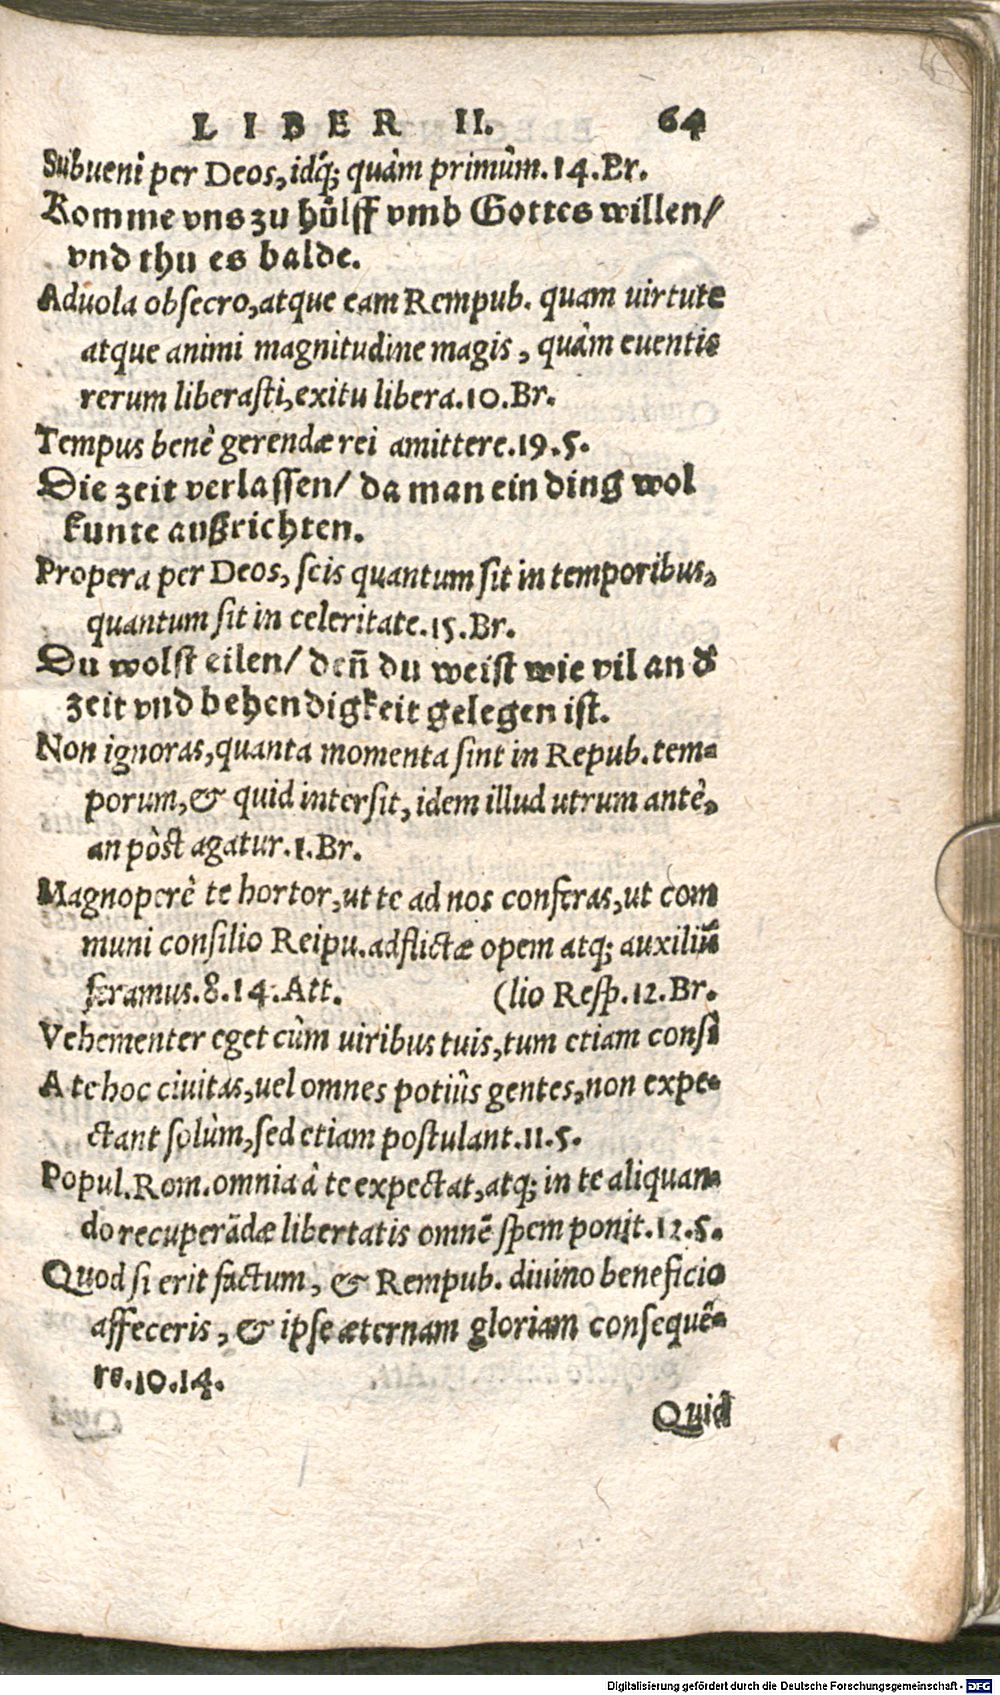 LIBER II. 64
Subueni per Deos, idq́; quàm primùm. 14. Br.
Komme vns zu hůlff vmb Gottes willen/
vnd thu es balde.
Aduola obsecro, atque eam Rempub. quam virtute
atque animi magnitudine magis, quàm euentis
rerum liberasti, exitu libera. 10. Br.
Tempus benè gerendæ rei amittere. 19. 5.
Die zeit verlassen/ da man ein ding wol
kunte außrichten.
Propera per Deos, scis quantum sit in temporibus,
quantum sit in celeritate. 15. Br.
Du wolst eilen/ den̄ du weist wie vil an d'
zeit vnd behendigkeit gelegen ist.
Non ignoras, quanta momenta sint in Repub. tem-
porum, & quid intersit, idem illud utrum antè,
an pòst agatur. 1. Br.
Magnoperè te hortor, ut te ad nos conferas, ut com
muni consilio Reipu. adflictæ opem atq; auxiliū
feramus. 8. 14. Att. (lio Resp. 12. Br.
Vehementer eget cùm viribus tuis, tum etiam consi
A te hoc ciuitas, uel omnes potiùs gentes, non expe-
ctant solùm, sed etiam postulant. 11. 5.
Popul. Rom. omnia à te expectat, atq; in te aliquan-
do recuperādæ libertatis omnē spem ponit. 12. 5.
Quod si erit factum, & Rempub. diuino beneficio
affeceris, & ipse æternam gloriam consequē-
re. 10. 14.
Quid
Digitalisierung gefördert durch die Deutsche Forschungsgemeinschaft - DFG